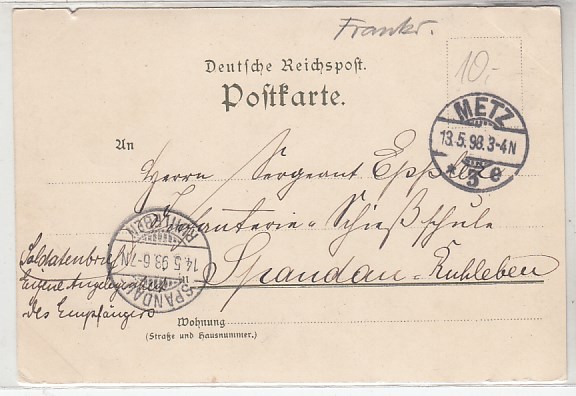 Frankr.
10,-
Deutsche Reichspost.
Postkarte.
METZ
13.5.98.3-4N
* 3 e
An
Herrn Sergeant
Infanterie-Schießschule
Spandau-Ruhleben
Soldatenbrief
Eigene Angelegenheit
des Empfängers
RUHLEBEN
14.5.98.6-7N
SPANDAU
Wohnung
(Straße und Hausnummer.)